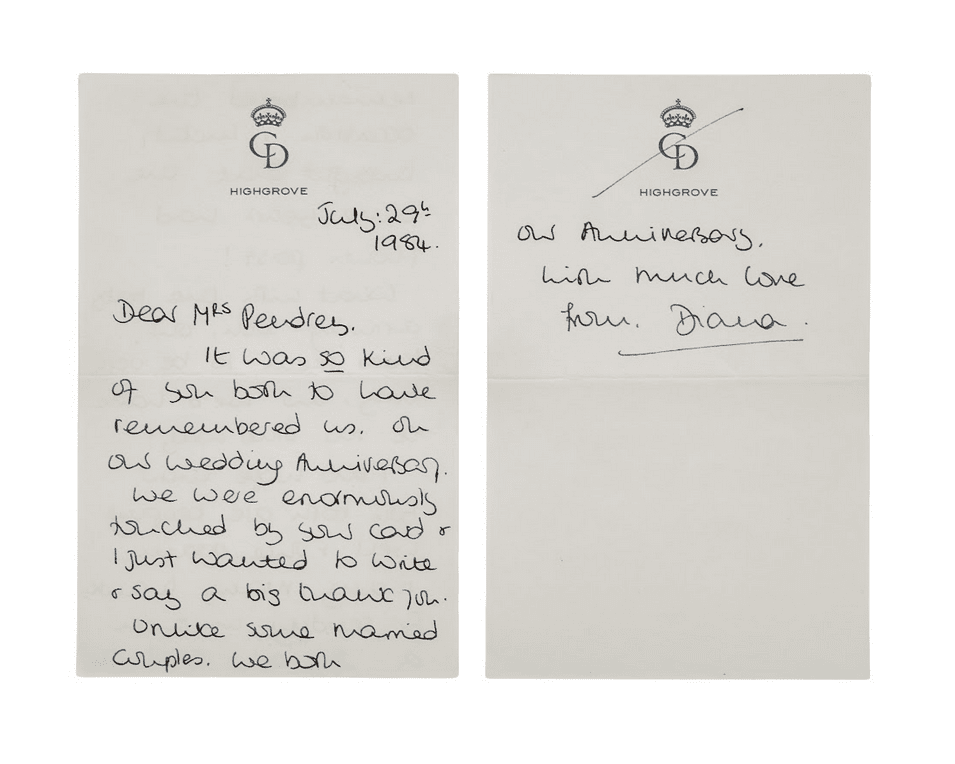 CD
HIGHGROVE
July: 29th
1984.
Dear Mrs Pendrey.
It was so kind
of you both to have
remembered us. on
our wedding Anniversary.
We were enormously
touched by your card &
I just wanted to write
& say a big thank you.
Unlike some married
couples. we both
CD
HIGHGROVE
our Anniversary.
with much love
from. Diana.